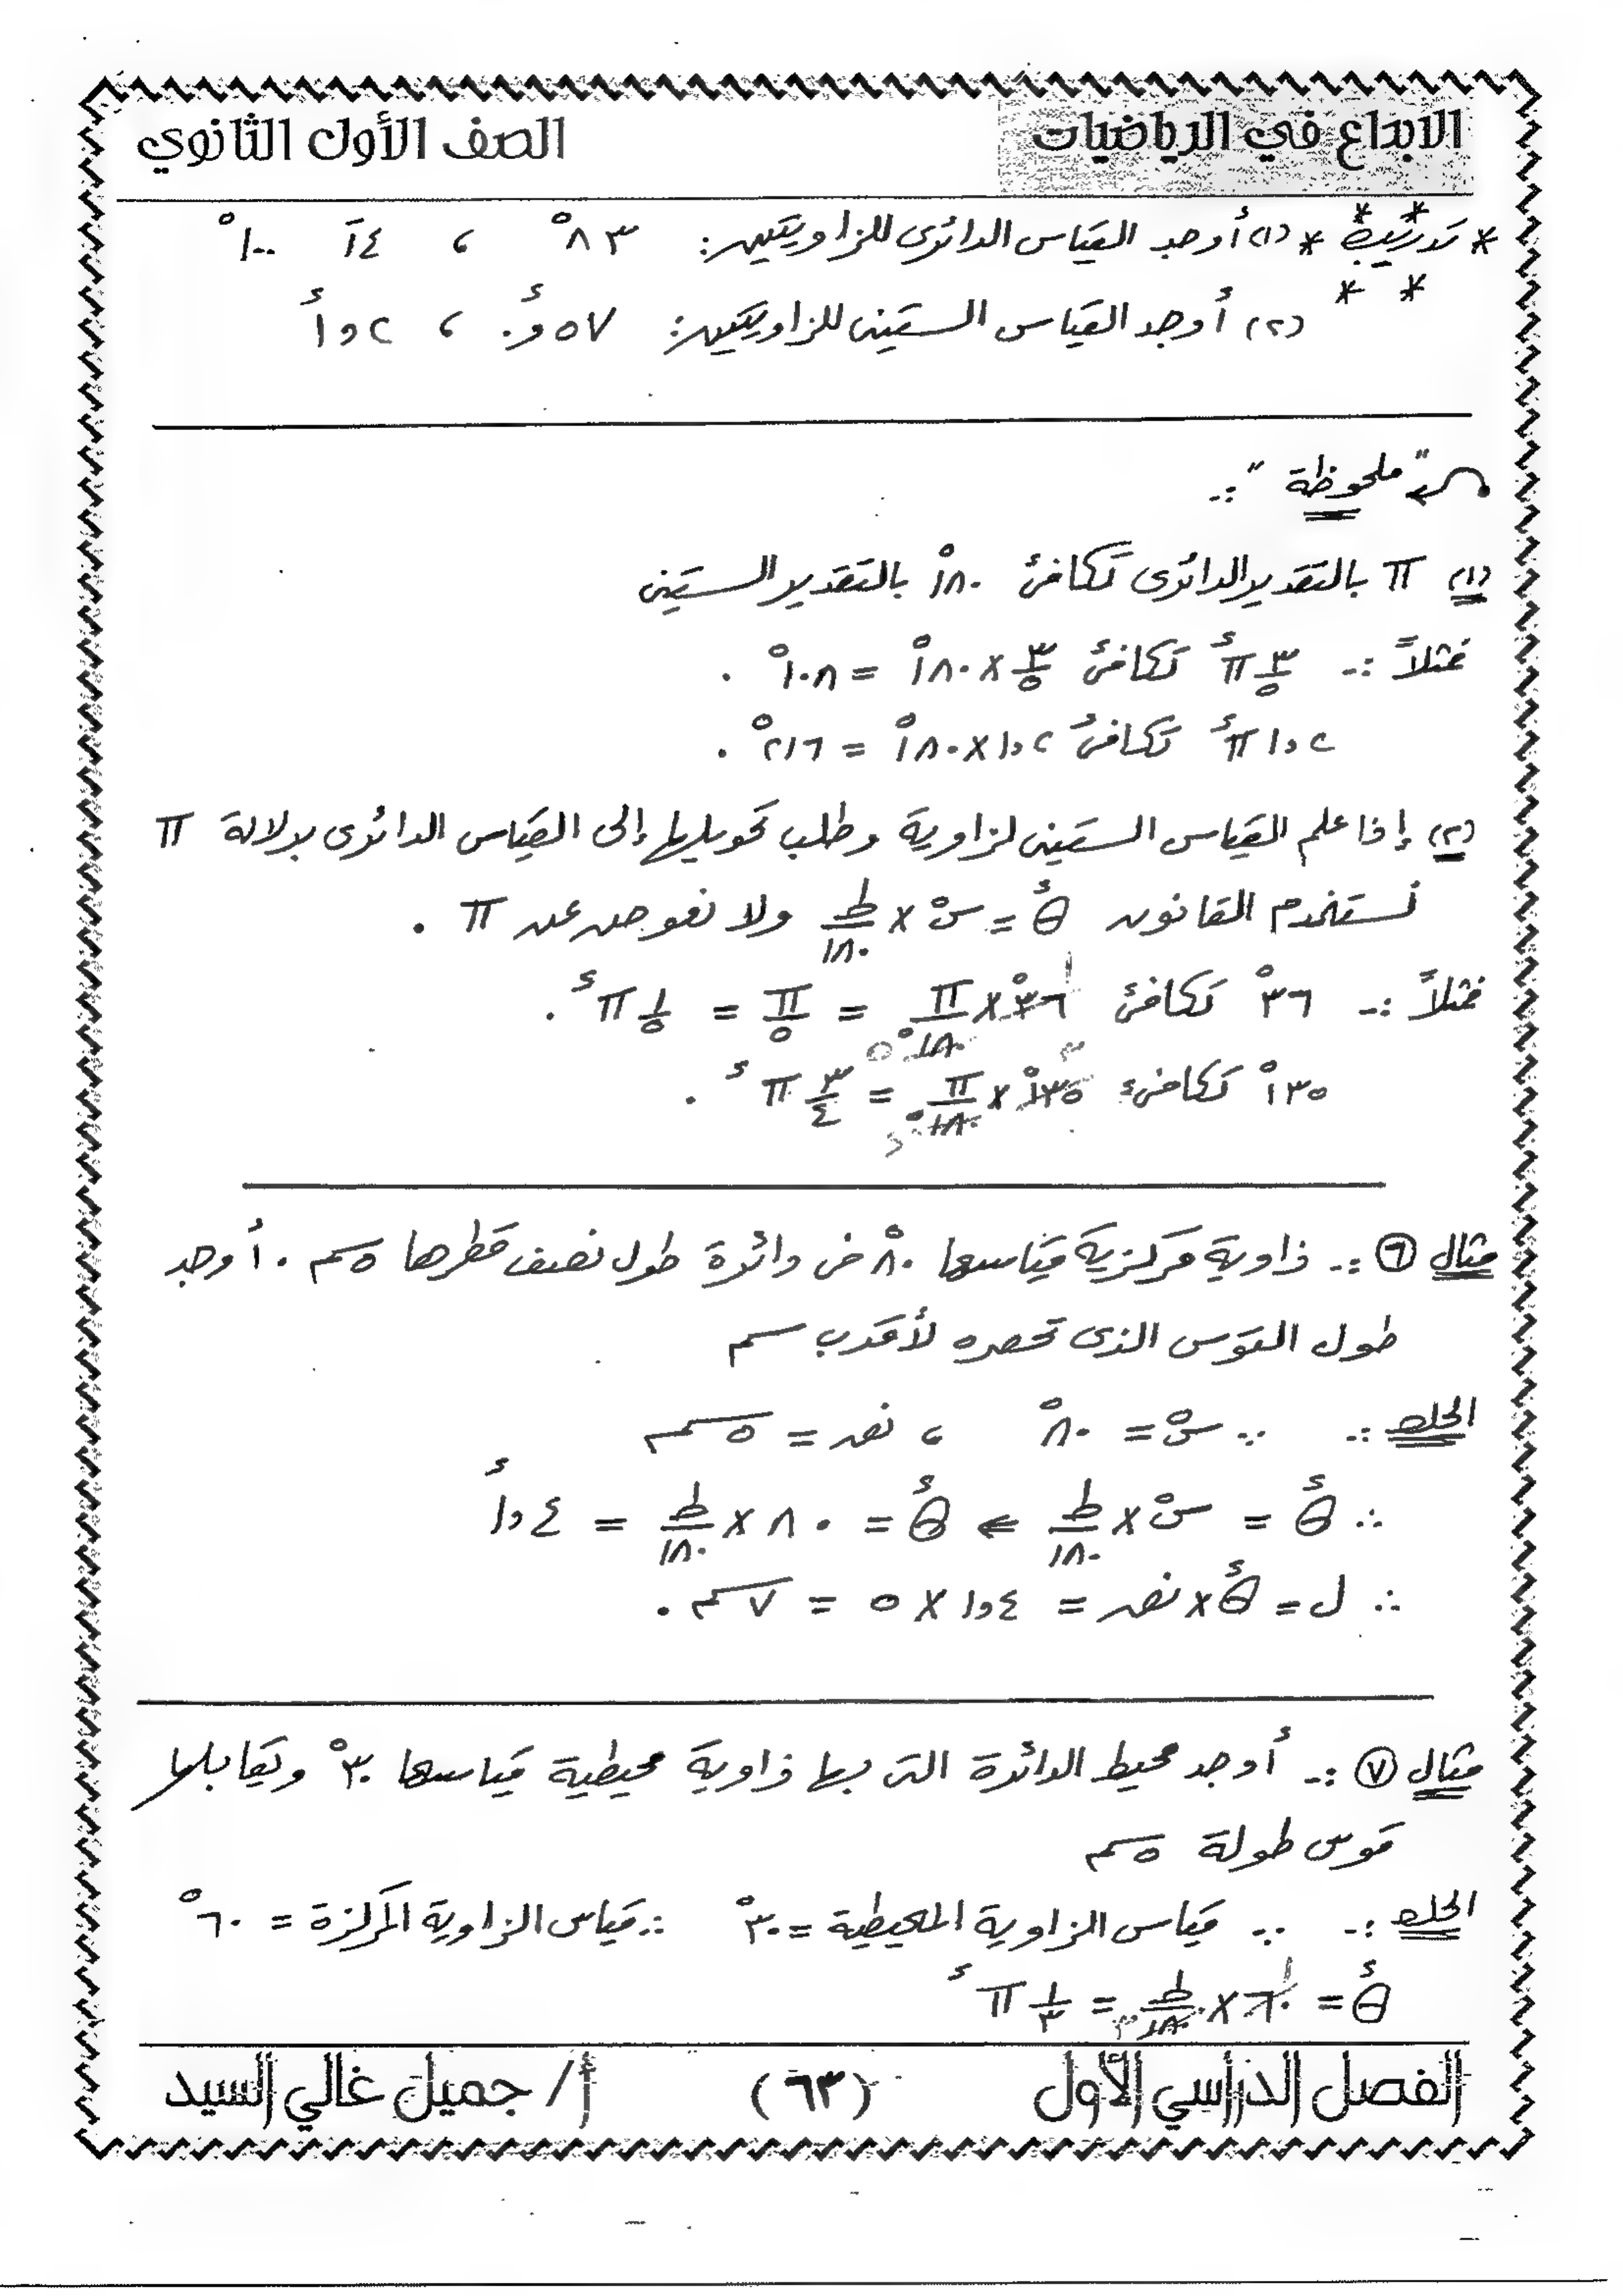 الابداع في الرياضيات
الصف الأول الثانوي
* تدريب * (١) أوجد القياس الدائرى للزاويتين: ٨٣° ، ١٤َ ١٠٠°
(٢) أوجد القياس الستينى للزاويتين: ٠٫٥٧ء ، ١٫٢ء
"ملحوظة" :-
(١) π بالتقدير الدائرى تكافئ ١٨٠° بالتقدير الستينى
فمثلاً :- ٣/٥ πء تكافئ ٣/٥ × ١٨٠° = ١٠٨° .
١٫٢ πء تكافئ ١٫٢ × ١٨٠° = ٢١٦° .
(٢) إذا علم القياس الستينى لزاوية وطلب تحويلها إلى القياس الدائرى بدلالة π
نستخدم القانون θء = س° × ط/١٨٠ ولا نعوض عن π .
فمثلاً :- ٣٦° تكافئ ٣٦° × π/١٨٠° = π/٥ = ١/٥ πء .
١٣٥° تكافئ ١٣٥° × π/١٨٠° = ٣/٤ πء .
مثال ٦ :- زاوية مركزية قياسها ٨٠° فى دائرة طول نصف قطرها ٥سم . أوجد
طول القوس الذى تحصره لأقرب سم
الحل :- ∵ س° = ٨٠° ، نق = ٥سم
∴ θء = س° × ط/١٨٠ ⇐ θء = ٨٠ × ط/١٨٠ = ١٫٤ء
∴ ل = θء × نق = ١٫٤ × ٥ = ٧سم .
مثال ٧ :- أوجد محيط الدائرة التى بها زاوية محيطية قياسها ٣٠° ويقابلها
قوس طولة ٥سم
الحل :- ∵ قياس الزاوية المحيطية = ٣٠° ∴ قياس الزاوية المركزة = ٦٠°
θء = ٦٠ × ط/١٨٠ = ١/٣ πء
الفصل الدراسي الأول
(٦٣)
أ/ جميل غالي السيد